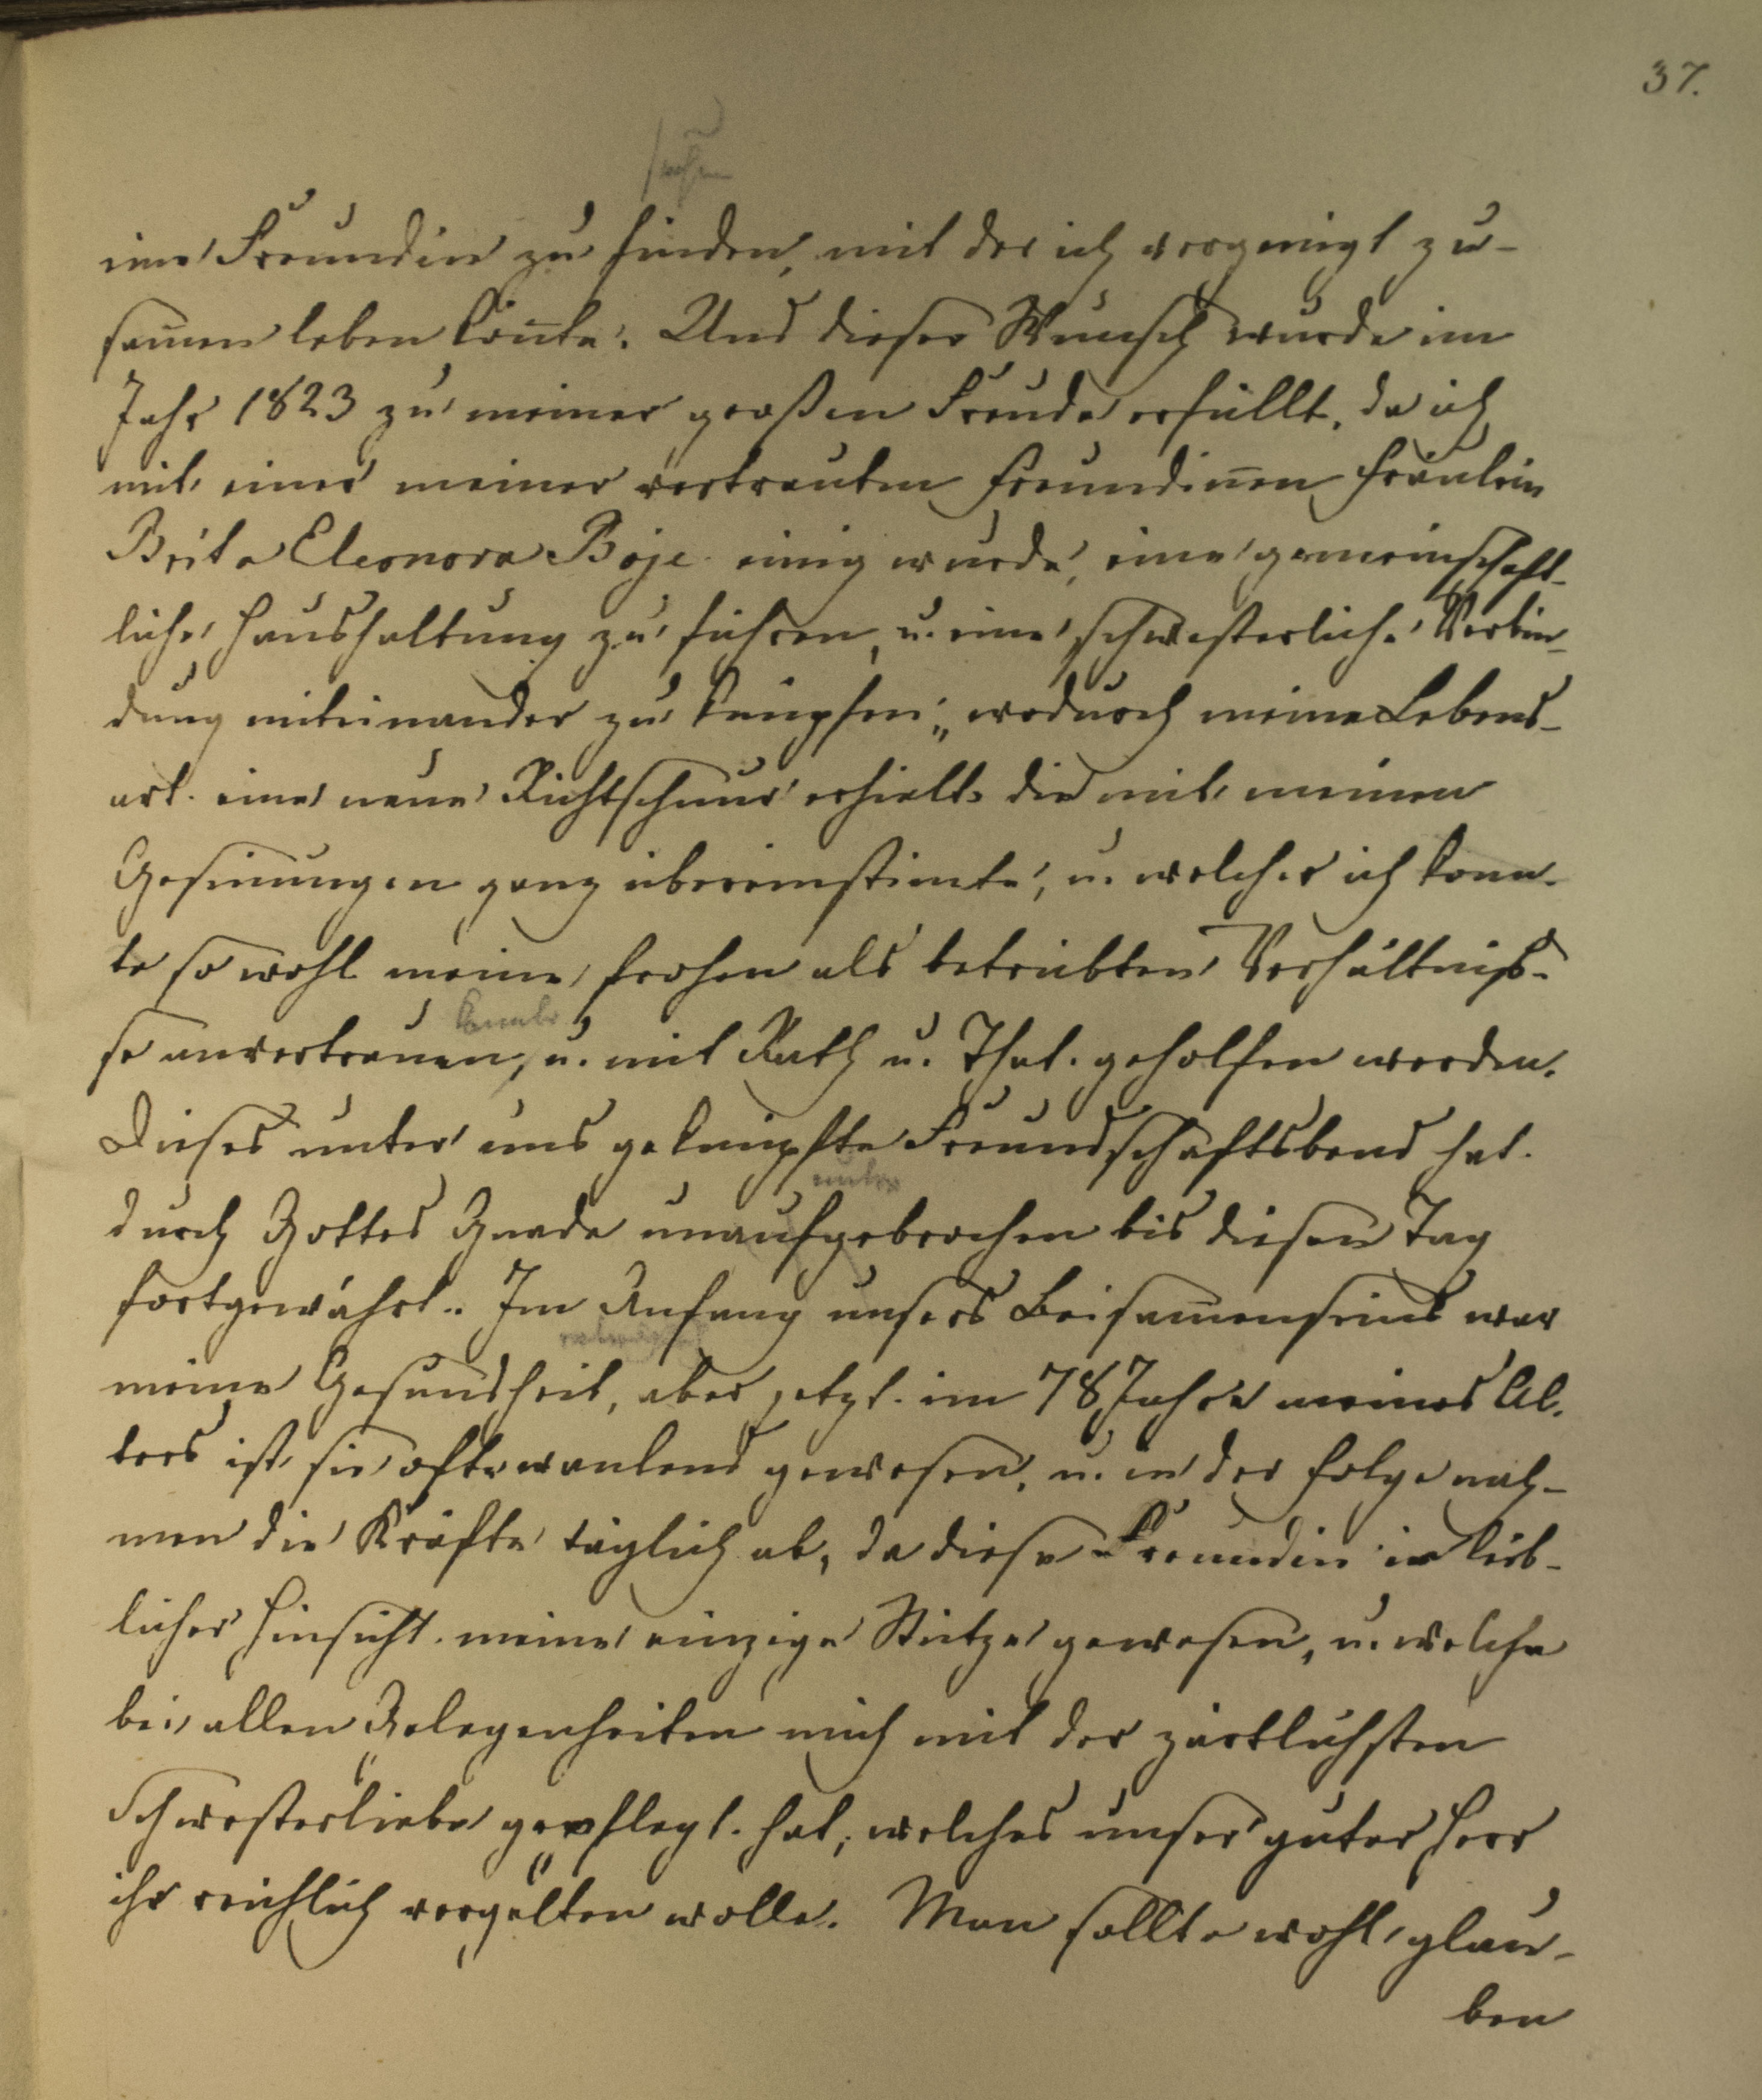 37.
eine Freundin zu finden, mit der ich vergnügt zu-
sam̅en leben kon̅te. Und dieser Wunsch wurde im
Jahr 1823 zu meiner großen Freude erfüllt, da ich
mit einer meiner vertrauten Freundin̅en Fräulein
Brita Eleonora Boje einig wurde, eine gemeinschaft-
liche Haushaltung zu führen, u. eine schwesterliche Verbin-
dung miteinander zu knüpfen; wodurch meine Lebens-
art eine neue Richtschnur erhielt die mit meinen
Gesinnungen ganz übereinstimte, u. welcher ich konn-
te so wohl meine frohen als betrübten Verhältniß-
konnte
se anvertrauen, u. mit Rath u. That geholfen werden.
Dieses unter uns geknüpfte Freundschaftsband hat
unter
durch Gottes Gnade unaufgebrochen bis diesen Tag
fortgewährt. Im Anfang unsers Beisam̅enseins war
meine Gesundheit, aber jetzt im 78 Jahre meines Al-
ters ist sie oft wankend gewesen, u. in der Folge nah-
men die Kräfte täglich ab, da diese Freundin in leib-
licher Hinsicht meine einzige Stütze gewesen, u. welche
bei allen Gelegenheiten mich mit der zärtlichsten
Schwesterliebe gepflegt hat, welches unser guter Herr
ihr reichlich vergelten wolle. Man sollte wohl glau-
ben